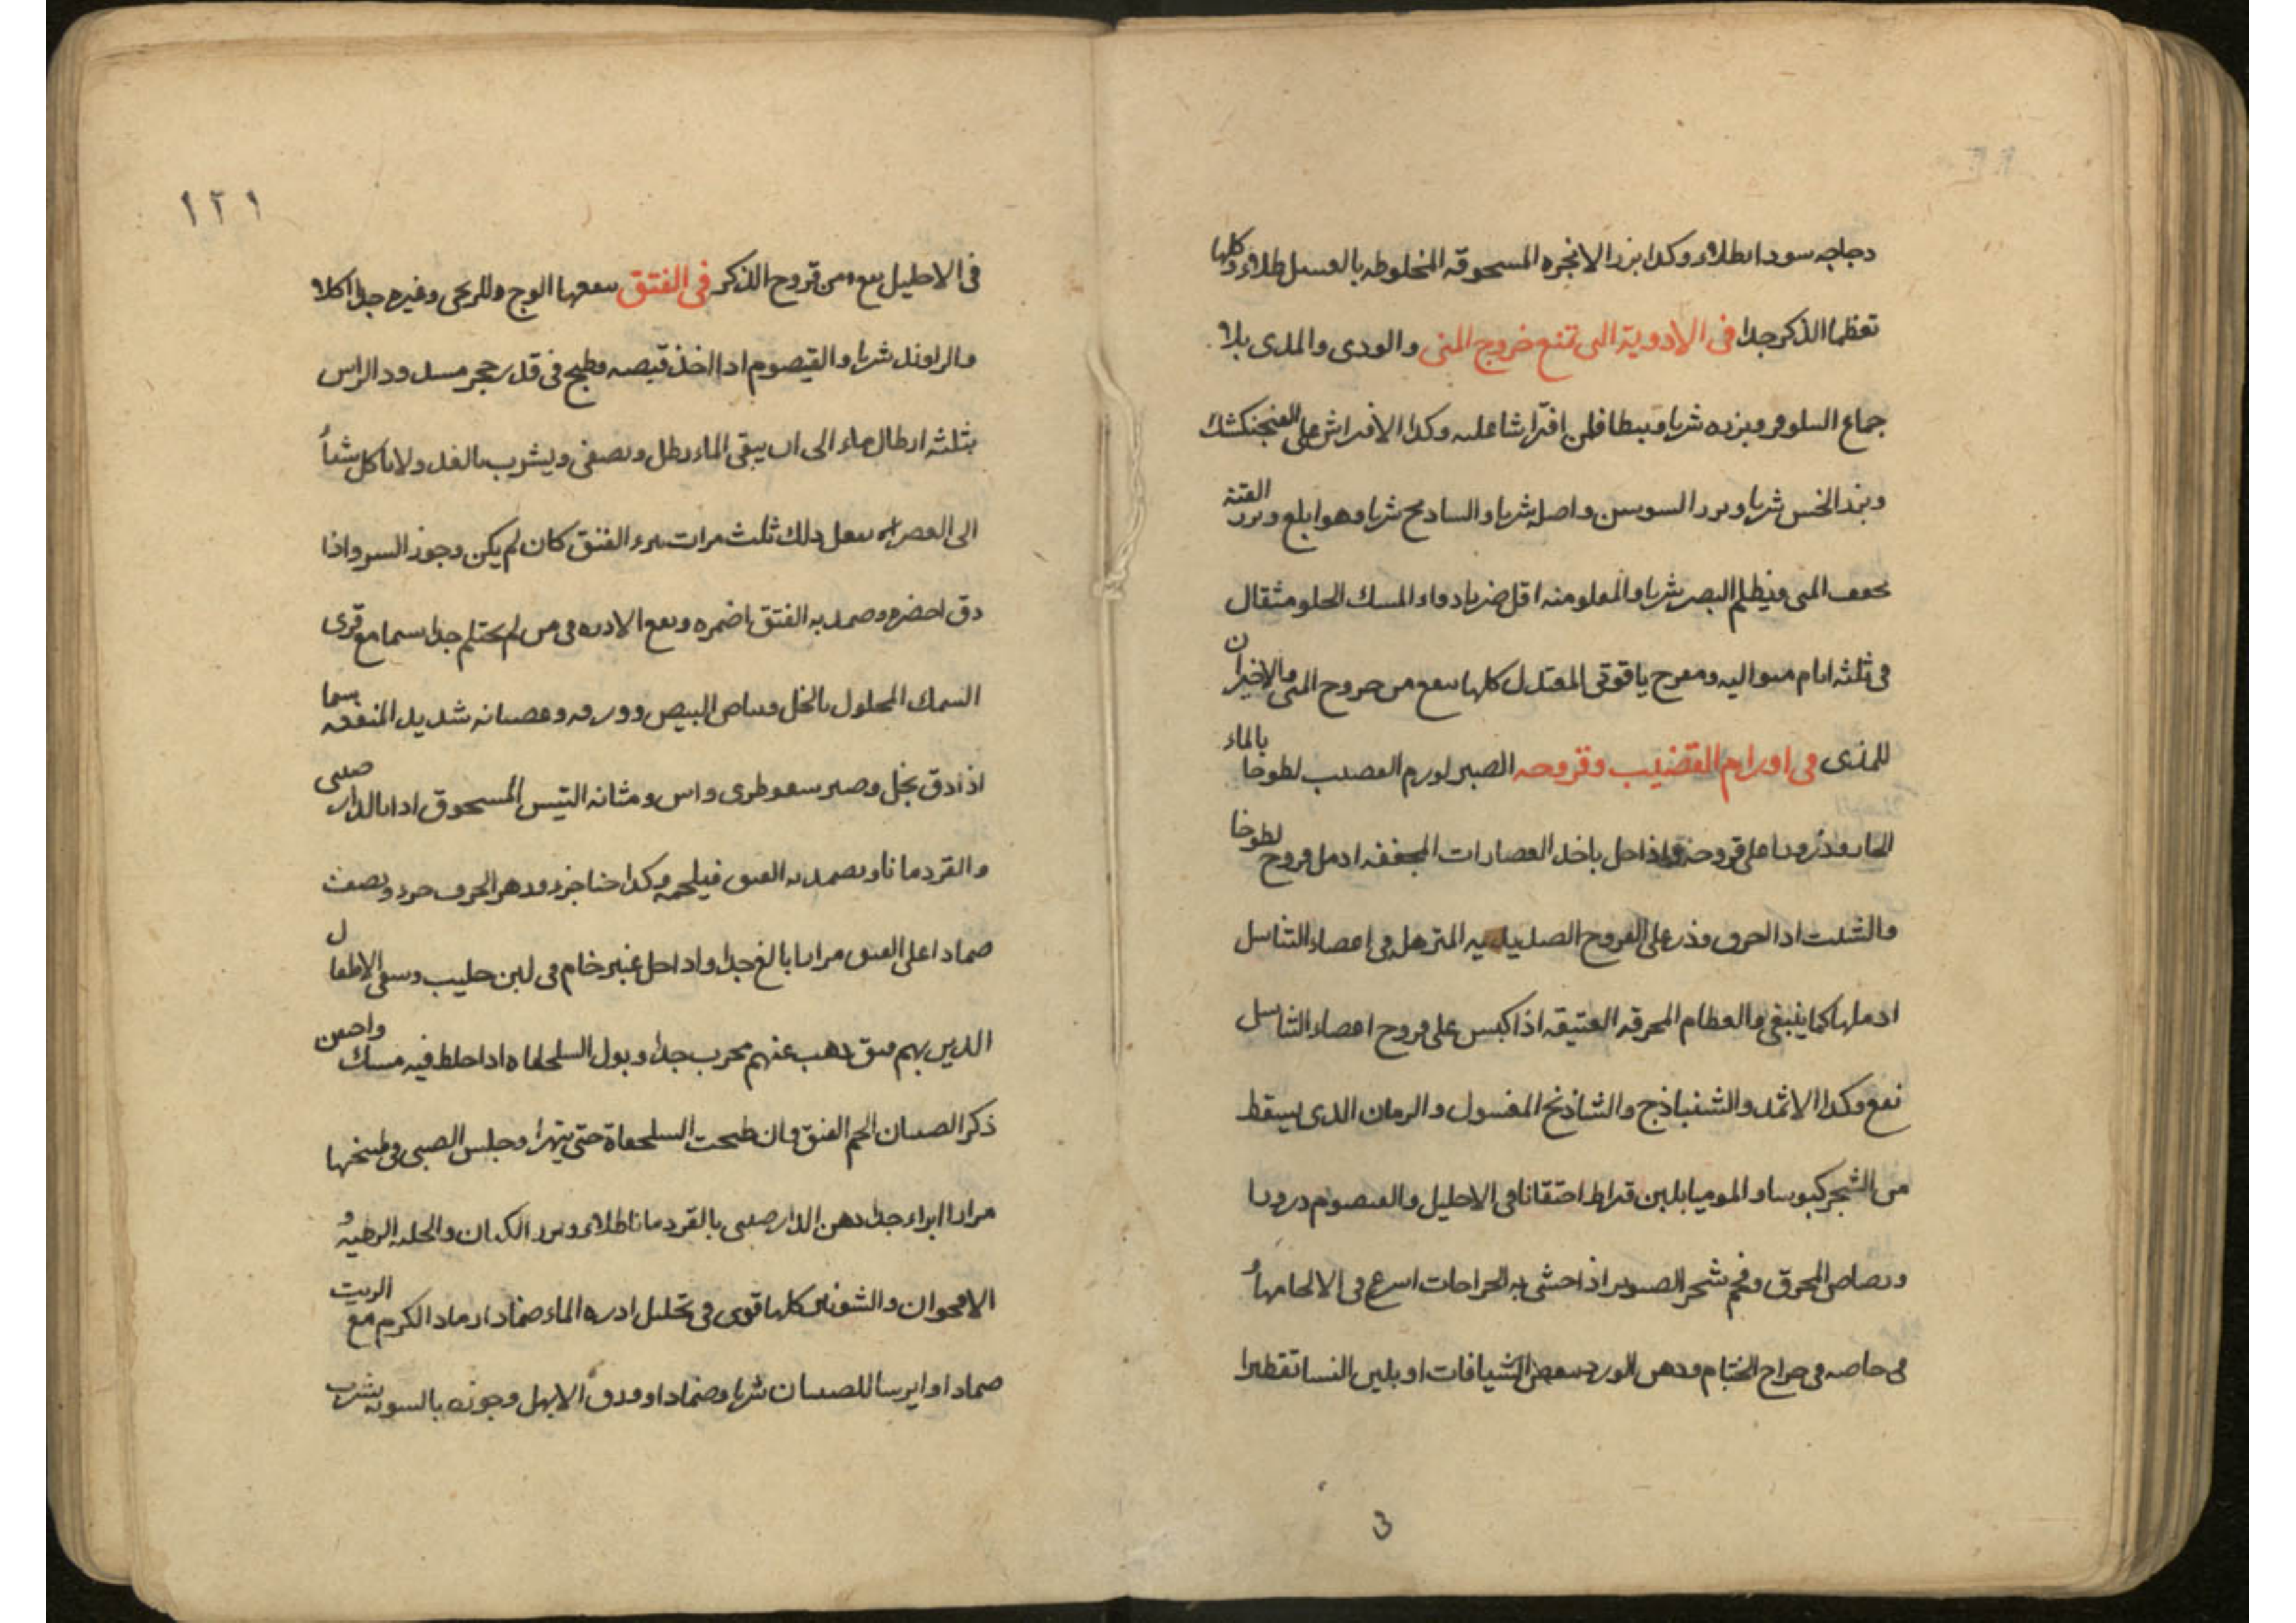 دجاجه سودا بطلاء وكدا بزر الانجره المسحوقه المخلوطه بالعسل طلاء وكلها
تعظم الذكر جدا فى الادوية التى تمنع خروج المنى والودى والمدى بلا
جماع السلوفر وبزره شربا وبطا فلن افتراشا عليه وكدا الافتراش على الفنجنكشك
وبزر الخس شربا وبرر السوسن واصله شربا والسادج شربا وهو ابلغ وبرر القته
يجفف المنى ويظلم البصر شربا والمقلو منه اقل ضربا دواء المسك الحلو مثقال
فى ثلثه ايام متواليه ومفرح ياقوتى المعتدل كلها ينفع من خروج المنى والاخيران
للمذى فى اورام القضيب وقروحه الصبر لورم القضيب لطوخا بالماء
الحار وذرورا على قروحه واذا حل باخد العصارات المجففه ادمل قروح لطوخا
والشبت ادا احرق وذر على القروح الصديديه المترهل فى اعضاء التناسل
ادملها كما ينبغى والعظام المحرقه العتيقه اذا كبس على قروح اعضاء التناسل
نفع وكدا الاثمد والشنباذج والشاذنج المغسول والرمان الدى يسقط
من الشجر كبوسا والموميا بلبن قراط احتقانا فى الاحليل والقيصوم درورا
ورصاص المحرق وفحم شجر الصنوبر اذا حشى به الجراحات اسرع فى الالحامها و
فى خاصه فى جراح الختام ودهن الورد ببعض الشيافات او بلبن النسا تقطيرا
ع
١٢١
فى الاحليل ينفع من قروح الذكر فى الفتق ينفعها الوج وللريحى وغيره جدا اكلا
والراوند شربا والقيصوم ادا اخذ قبصه وطبخ فى قدر حجر مسدود الراس
بثلثه ارطال ماء الى ان يبقى الماء رطل ويصفى ويشرب بالغد ولا ياكل شيأ
الى العصر يفعل دلك ثلث مرات يبرء الفتق كان لم يكن وجوز السرو اذا
دق اخضره وضمد به الفتق اضمره وينفع الادره فى من لم يحتلم جدا سيما مع غرى
السمك المحلول بالخل وبياض البيض وورقه وعصانه شديد المنفعه سيما
اذا دق بخل وصبر سقوطرى واس ومثانه التيس المسحوق ادا بالدار صينى
والقردمانا ويضمد به الفتق فيلحمه وكدا خنا جزء ودهر الحرف جزء ونصف
ضمادا على الفتق مرارا بالغ جدا وادا حل عنبر خام فى لبن حليب وسقى الاطفال
الدين بهم فتق دهب عنهم مجرب جدا وبول السلحفاه ادا خلط فيه مسك واحقن
ذكر الصبيان الحم الفتق وان طبخت السلحفاة حتى يتهرا وجلس الصبى فى طبيخها
مرارا ابراء جدا دهن الدار صينى بالقردمانا طلاء وبرر الكتان والحلبه الرطبه و
الاقحوان والشونيز كلها قوى فى تحليل ادره الماء ضمادا رماد الكرم مع الزيت
ضمادا وايرسا للصبيان شربا وضمادا وورق الابهل وجوزه بالسويه يشرب